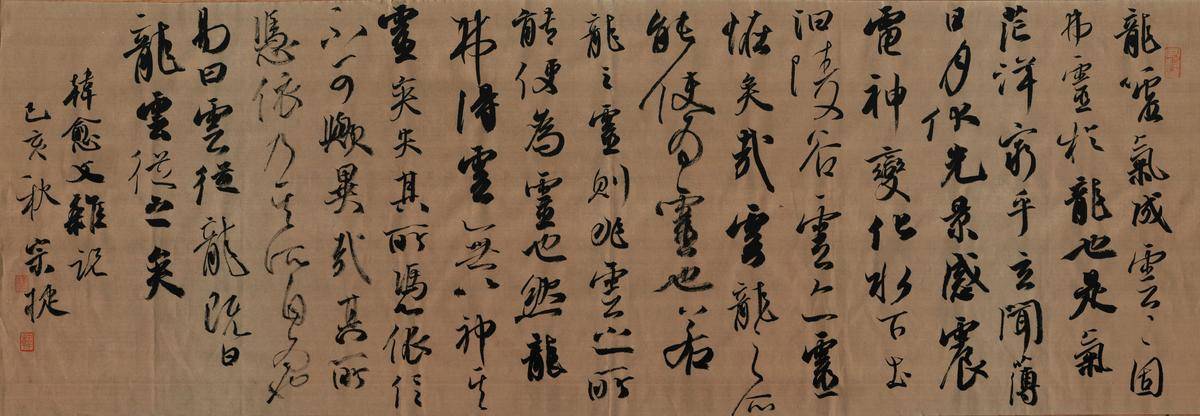 龍噓氣成雲〻固
弗靈於龍也是氣
茫洋窮乎玄間薄
日月伏光景感震
電神變化水下土
汩陵谷雲亦靈
怪矣哉雲龍之所
能使為靈也若
龍之靈則非雲之所
能使為靈也然龍
弗得雲無以神其
靈矣失其所憑依信
不可歟異哉其所
憑依乃其所自為
易曰雲從龍既曰
龍雲從之矣
韓愈文雜說
己亥秋宗捷